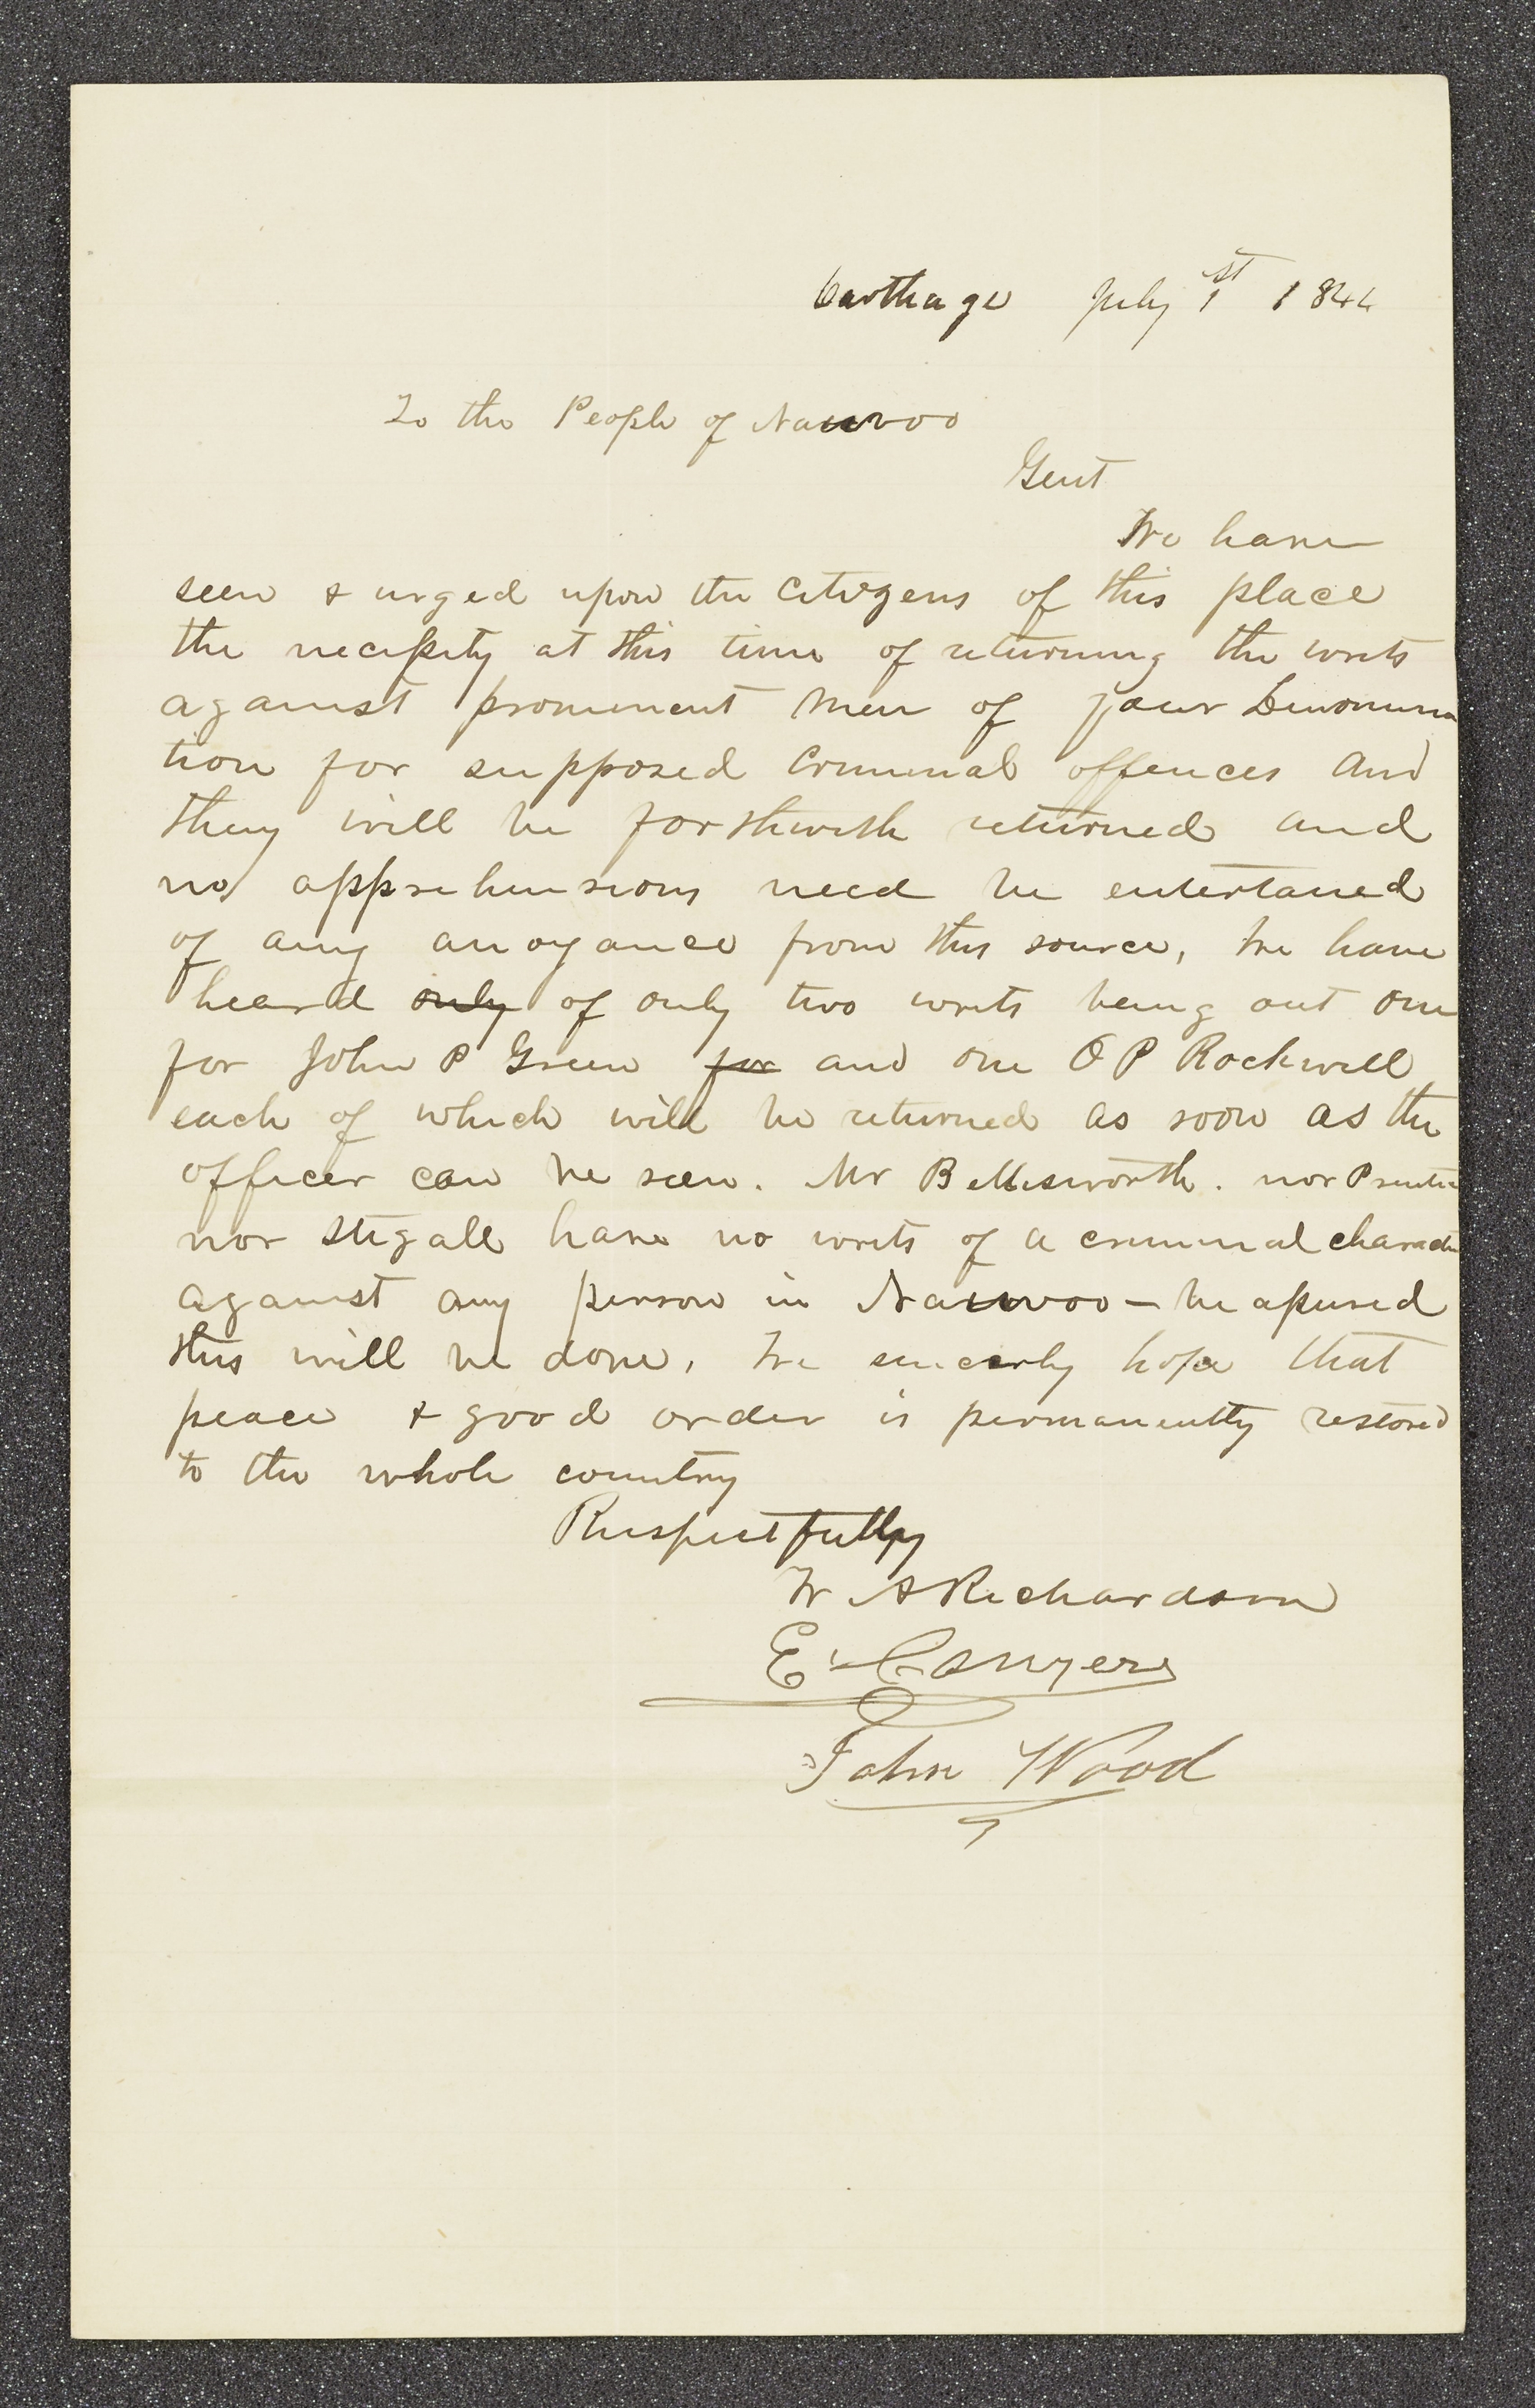 Carthage July 1st 1844
To the People of Nauvoo
Gent
We have
seen & urged upon the Citizens of this place
the necessity at this time of returning the writs
against prominent men of your Denomina
tion for supposed Criminal offences and
they will be forthwith returned and
no apprehensions need be entertaned
of any anoyance from this source, We have
heard only of only two writs being out one
for John P Green for and one O P Rockwell
each of which will be returned as soon as the
officer can be seen. Mr Bettisworth. nor Prentic
nor Stigall have no writs of a criminal character
against any person in Nauvoo — be assured
this will be done, We sincerly hope that
peace & good order is permanently restored
to the whole country
Respectfully
W A Richardson
E Conyers
John Wood